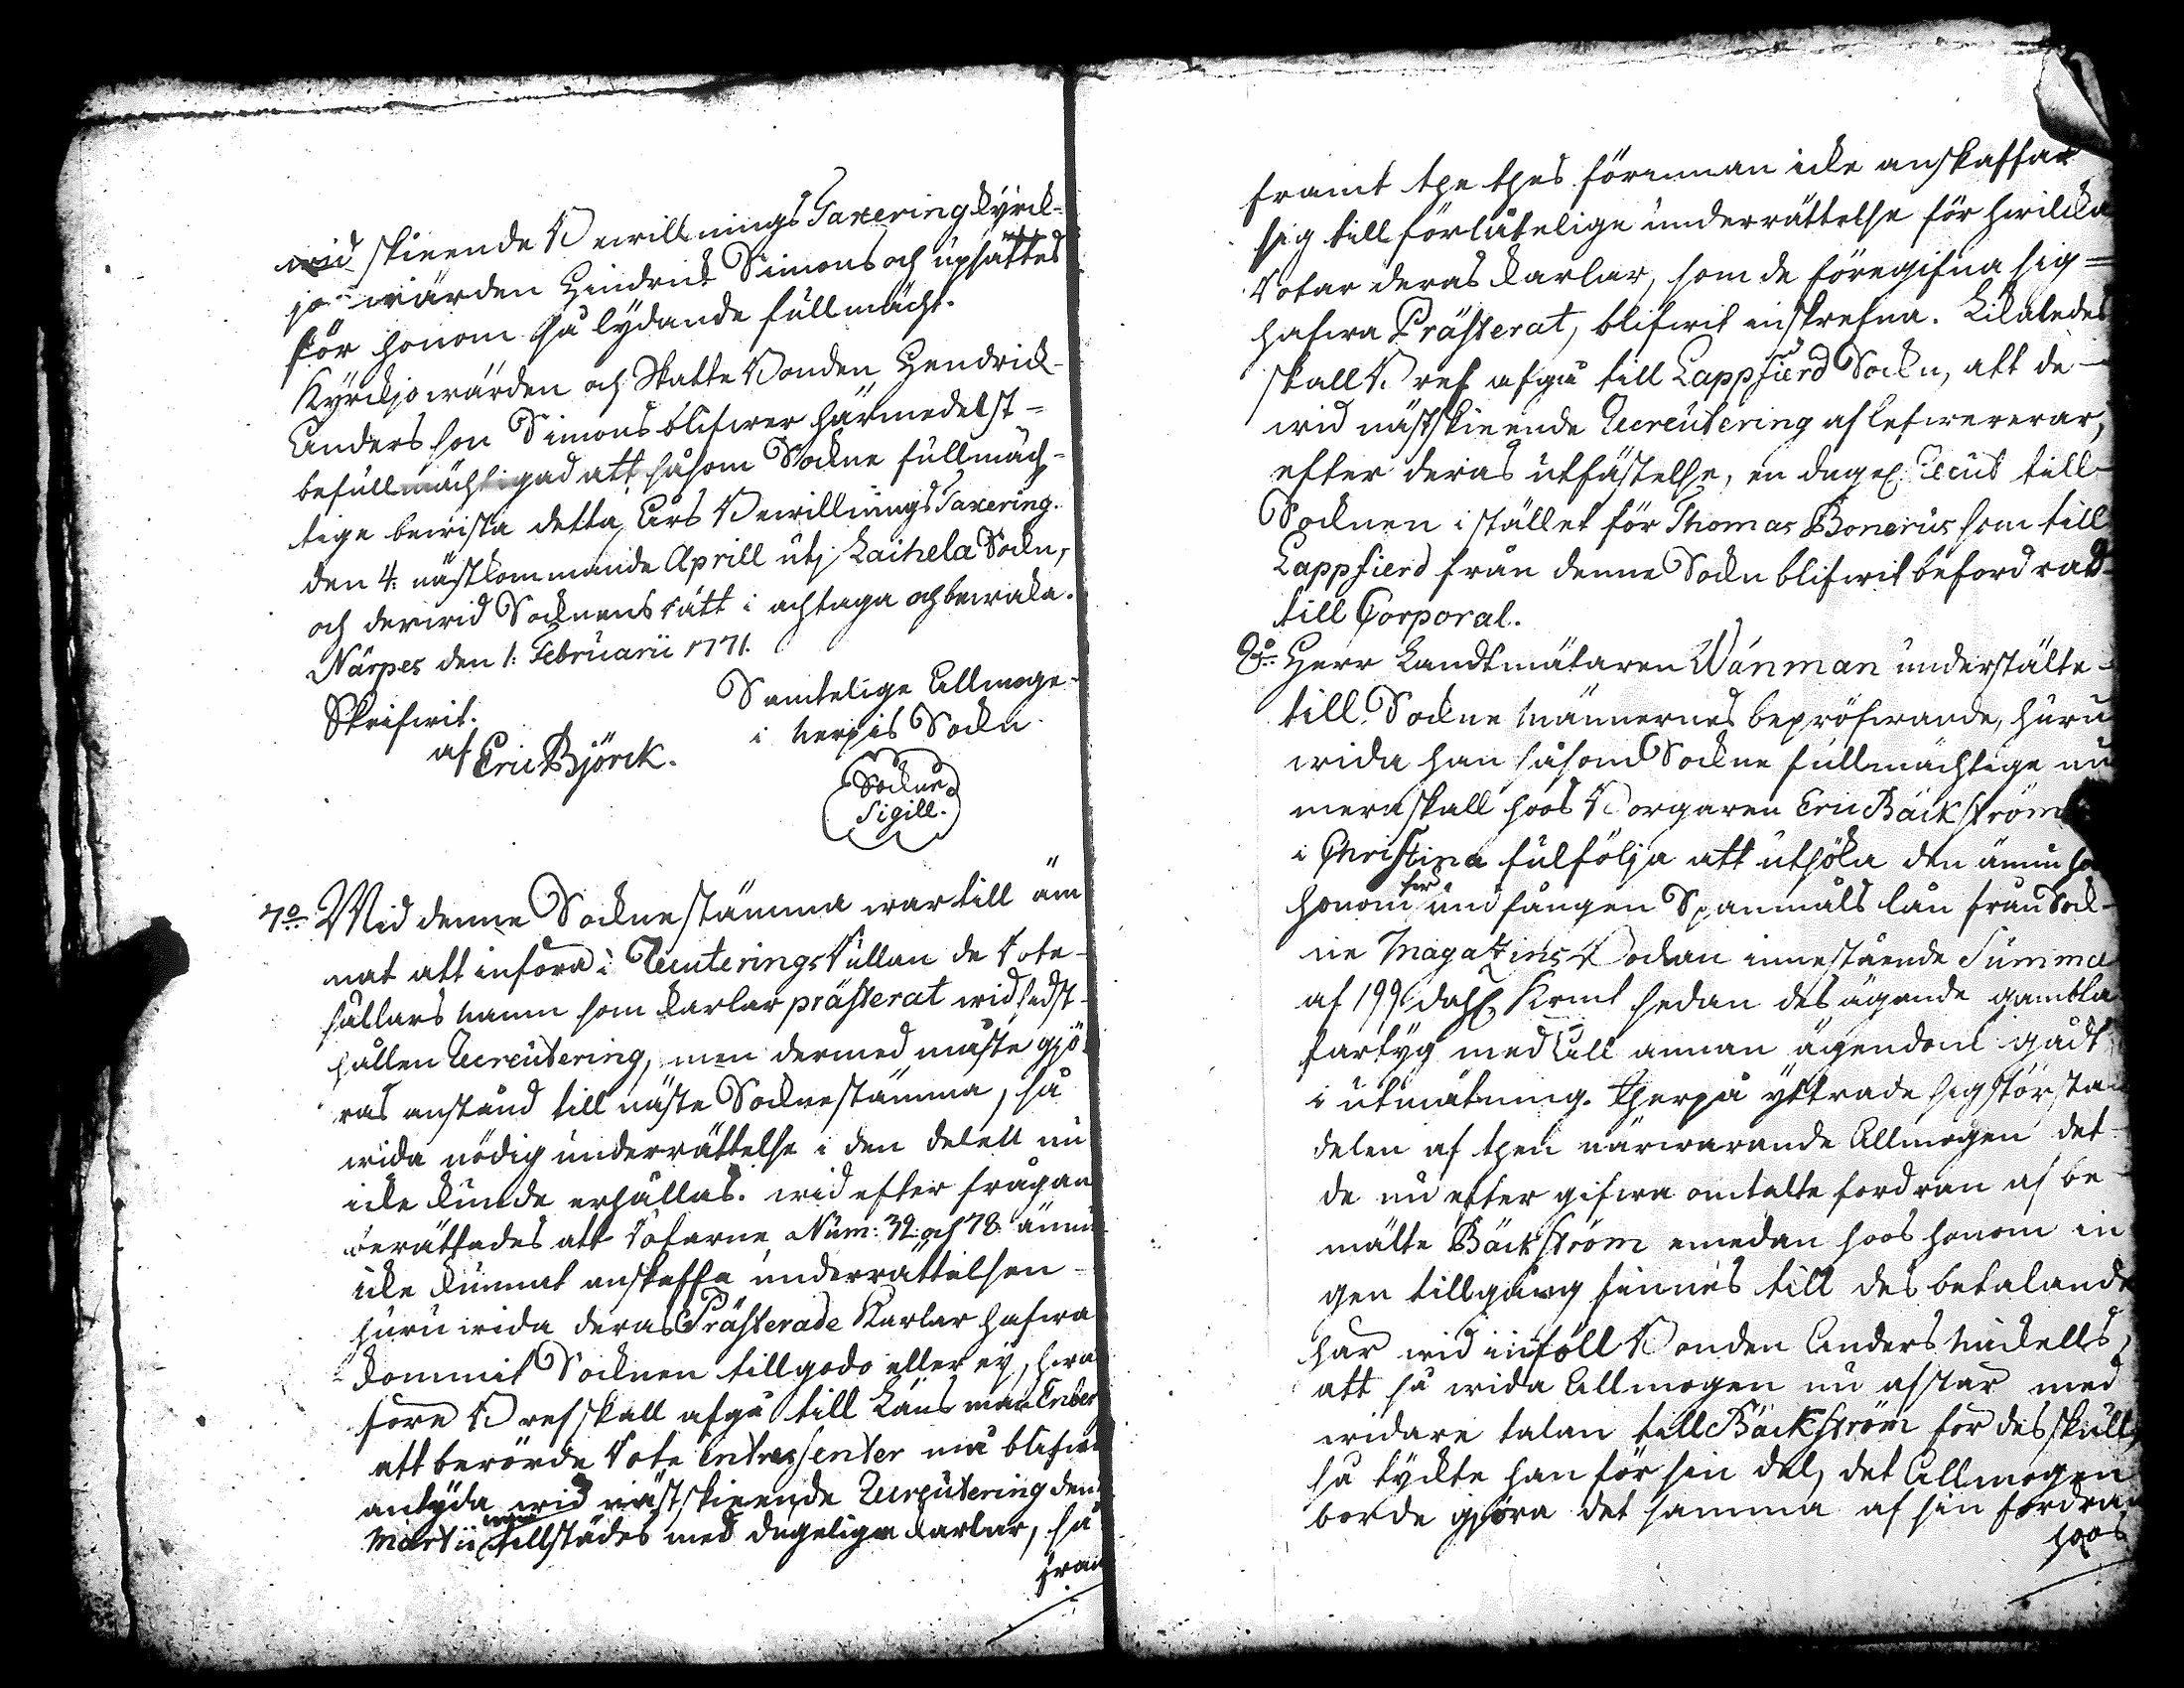 wid skieende Bewillnings Taxering kyrck-
jo-wärden Hindrick Simons och upsattes
för honom så lydande fullmächt.
Kyrckjowärden och Skatte Bonden Hendrick-
Anders son Simons blifwer härmedelst-
befullmächtigad att såsom Sockne fullmäch-
tige bewista detta Års Bewillnings Taxering.
den 4: nästkommande Aprill uti Laihela Sockn,
och derwid Socknens rätt i achtaga och bewaka.
Närpes den 1: Februarii 1771.
Skrifwit.
af Eric Björck.
Samtelige Allmoge-
i Nerpis Sockn
Sockne
Sigill.
7o. Wid denne Sockne stämma war till äm
nat att införa i Reuterings Rullan de Rote-
hållars namn som karlar præsterat wid sidst-
hållen Recreutering, men dermed måste gjö-
ras anstånd till näste Sockne stämma, så
wida nödig underrättelse i den delen nu
icke kunde erhållas. wid efter frågan
berättades att Rotarne Num: 32 och 78 ännu
icke kunnat anskaffa underrättelsen-
huru wida deras Præsterade Karlar hafwa
kommit Socknen till godo eller ey, hwar
före Bref skall afgå till Läns man Enber
att berörde Rote Intressenter må blifwa
antyda wid nästskieende Recreutering den
Martii tillstädes med dugeliga karlar, så
fram
framt the thes förinnan icke anskaffat
sig tillförlåtelige underrättelse för hwilcka
Rotar deras karlar, som de föregifna sig-
hafwa Præsterat, blifwit inskrefna. Likaledes
skall Bref afgå till Lappfierd Sockn, att de-
wid nästskieende Recreutering aflefwererar,
efter deras utfästelse, en dugel Recrut till-
Socknen i stället för Thomas Bonerus som till
Lappfierd från denne Sockn blifwit befordrad-
till Corporal.
8o. Herr Landtmätaren Wänman understälte-
till Sockne Männernes bepröfwande, huru
wida han såsom Sockne fullmächtige nu
mera skall hoos Borgaren Eric Bäckström
i Christina fullfölja att utsöka den ännu ho
honom för undfången Spanmåls lån från Sock-
ne Magazins Bodan innestående Summa
af 199 dahl Kpmt sedan des ägande gambla
fartyg med all annan ägendom gådt
i utmätning. Therpå yttrade sig största
delen af then närwarande Allmogen det-
de nu efter gifwa omtalte fordran af be-
mälte Bäckström emedan hoos honom in
gen tillgång finnes till des betalande
här wid inföll Bonden Anders Mickells,
att så wida Allmogen nu afstår med
widare talan till Bäckström för des skuld,
så tyckte han för sin del, det Allmogen
borde gjöra det samma af sin fordran
hoos